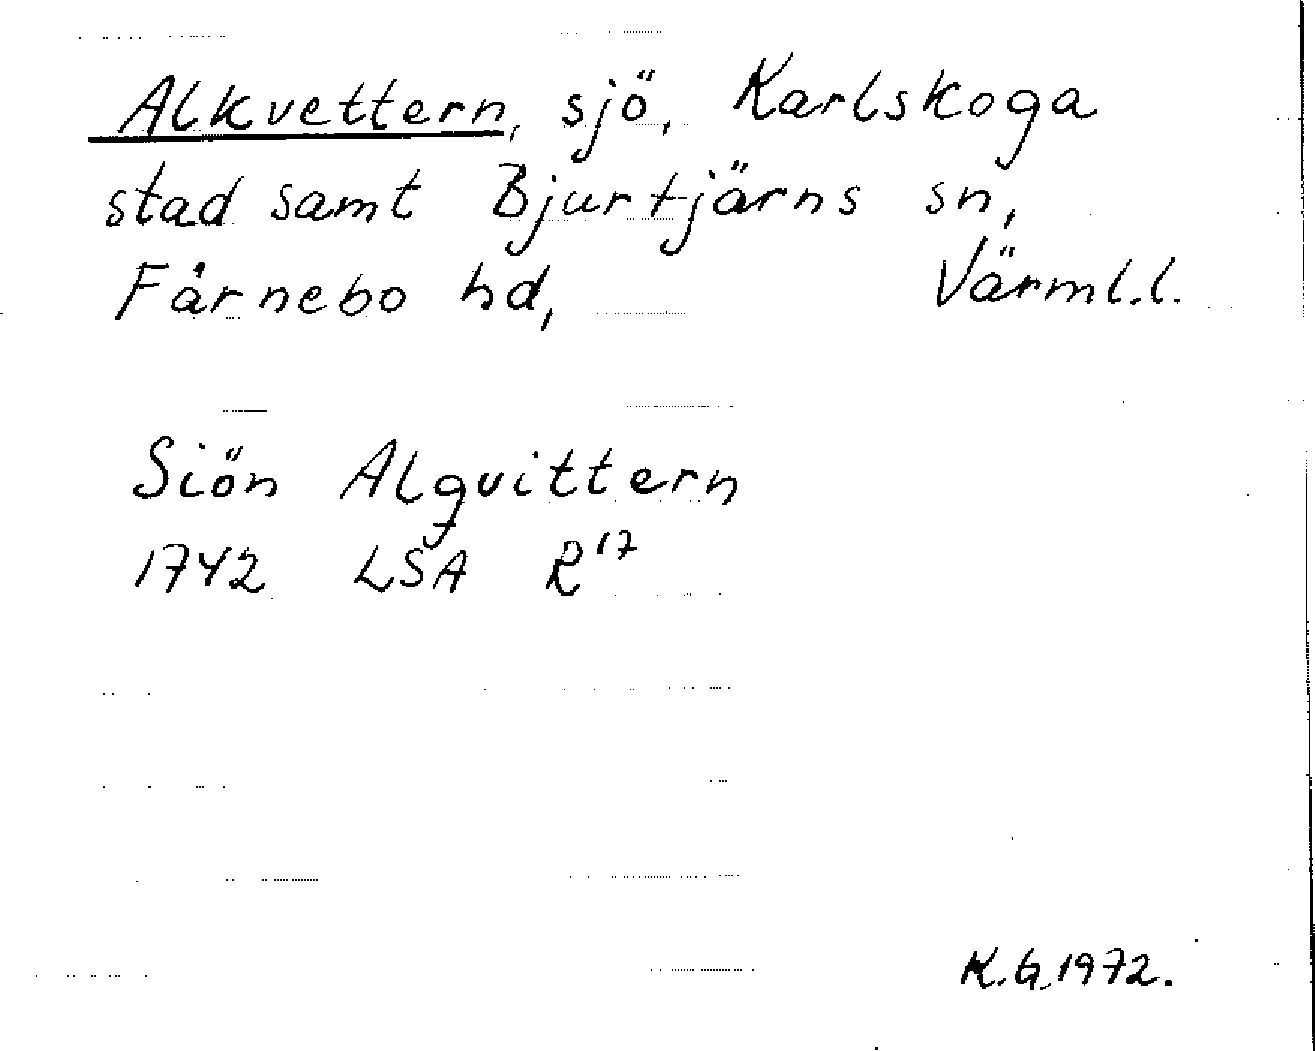 Alkvettern, sjö, Karlskoga
stad samt Bjurtjärns sn,
Färnebo hd, Värml.l.
Siön Alqvittern
1742 LSA R17
K.G.1972.